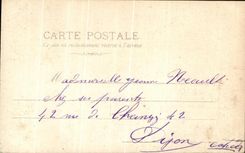 CARTE POSTALE
Ce côté est exclusivement réservé à l'adresse
Mademoiselle Jeanne
chez ses parents
42 rue de 42
Dijon